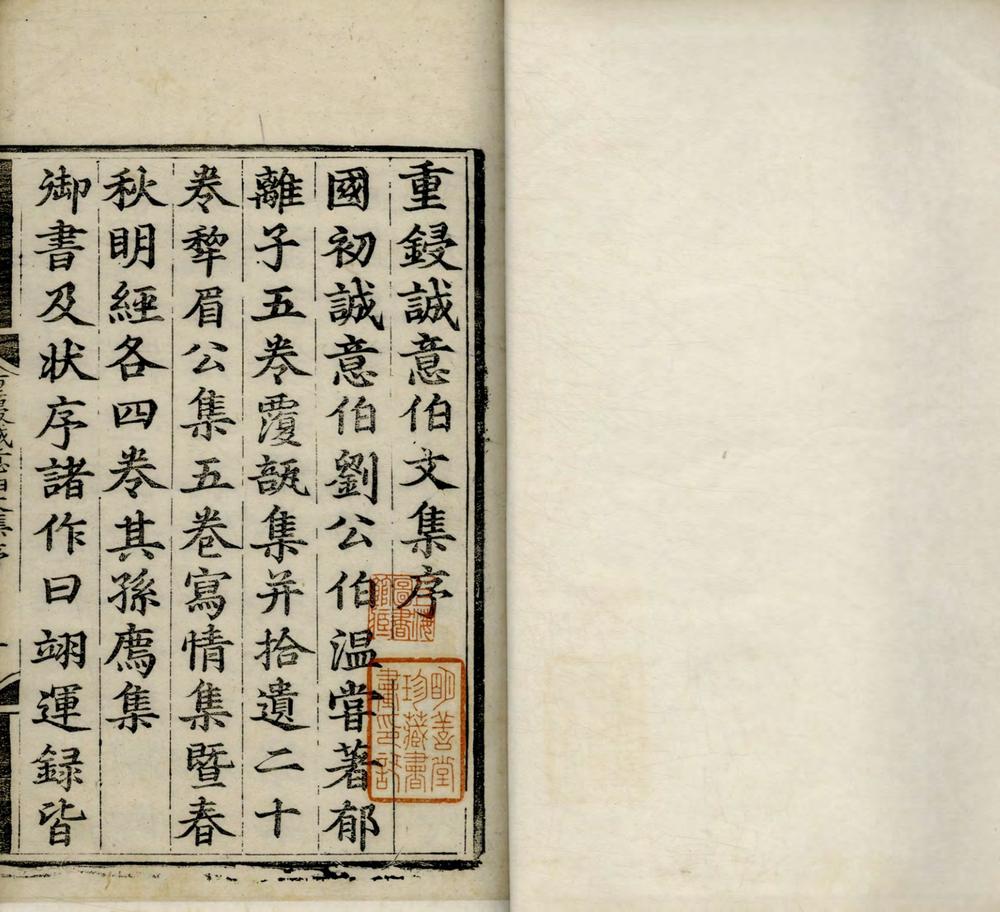 重鋟誠意伯文集序
國初誠意伯劉公伯温嘗著郁
離子五卷覆瓿集并拾遺二十
卷犂眉公集五卷寫情集暨春
秋明經各四卷其孫廌集
御書及狀序諸作曰翊運録皆
明善堂
珍藏書
畫印記